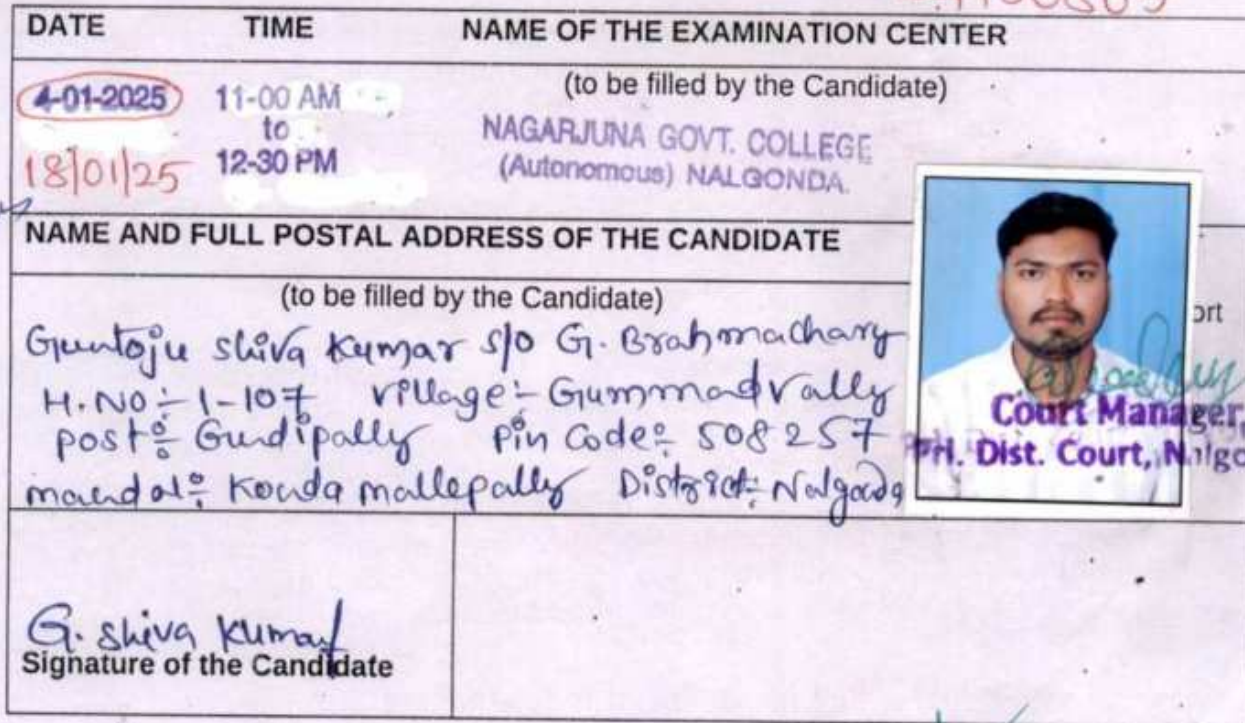 DATE TIME NAME OF THE EXAMINATION CENTER
(to be filled by the Candidate)
4-01-2025 11-00 AM
to
18/01/25 12-30 PM
NAGARJUNA GOVT. COLLEGE
(Autonomous) NALGONDA.
NAME AND FULL POSTAL ADDRESS OF THE CANDIDATE
(to be filled by the Candidate)
Guntoju Shiva Kumar S/o G. Brahmachary
H.No:- 1-107 Village:- Gummadvally
post:- Gudipally Pin Code:- 508257
mandal:- Konda mallepally District:- Nalgonda
Court Manager,
Prl. Dist. Court, Nalgo
G. Shiva Kumar
Signature of the Candidate